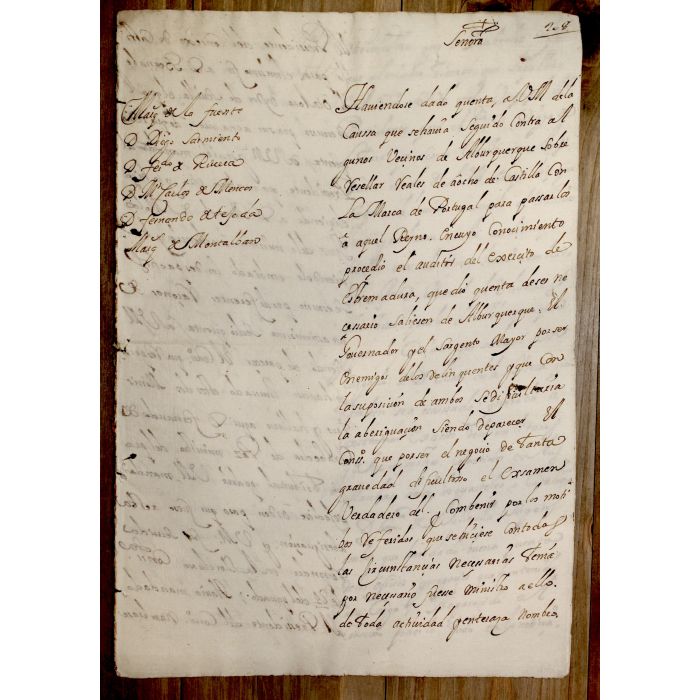 Señora
Marq de la fuente
D Diego Sarmiento
D ferdo de
D Ml Carlos de
D fernando de tejada
Marq de Montalban
Haviendose dado quenta, a VM de la
Caussa que se havia Seguido Contra al
gunos Vecinos de Alburquerque Sobre
Resellar Reales de aocho de Castilla Con
La Marca de Portugal para passarlos
a aquel Reyno. En cuyo Conocimiento
procedio el auditor del exercito de
Estremadura, que dio quenta de ser ne
cessario Saliesen de Alburquerque, El
Governador y el Sargento Mayor por ser
enemigos de los delinquentes y que con
la suposicion de ambos se dificultaria
la aberiguaçon siendo de parecer El
Conso. que por ser el negocio de Tanta
gravedad dificultoso el Exsamen
Verdadero del. y Combenir por los moti
bos Referidos, que se hiciese con todas
las Circunstancias Necessarias Tenia
por necessario fuesse Ministro a ello
de toda actividad y entereza Nombro